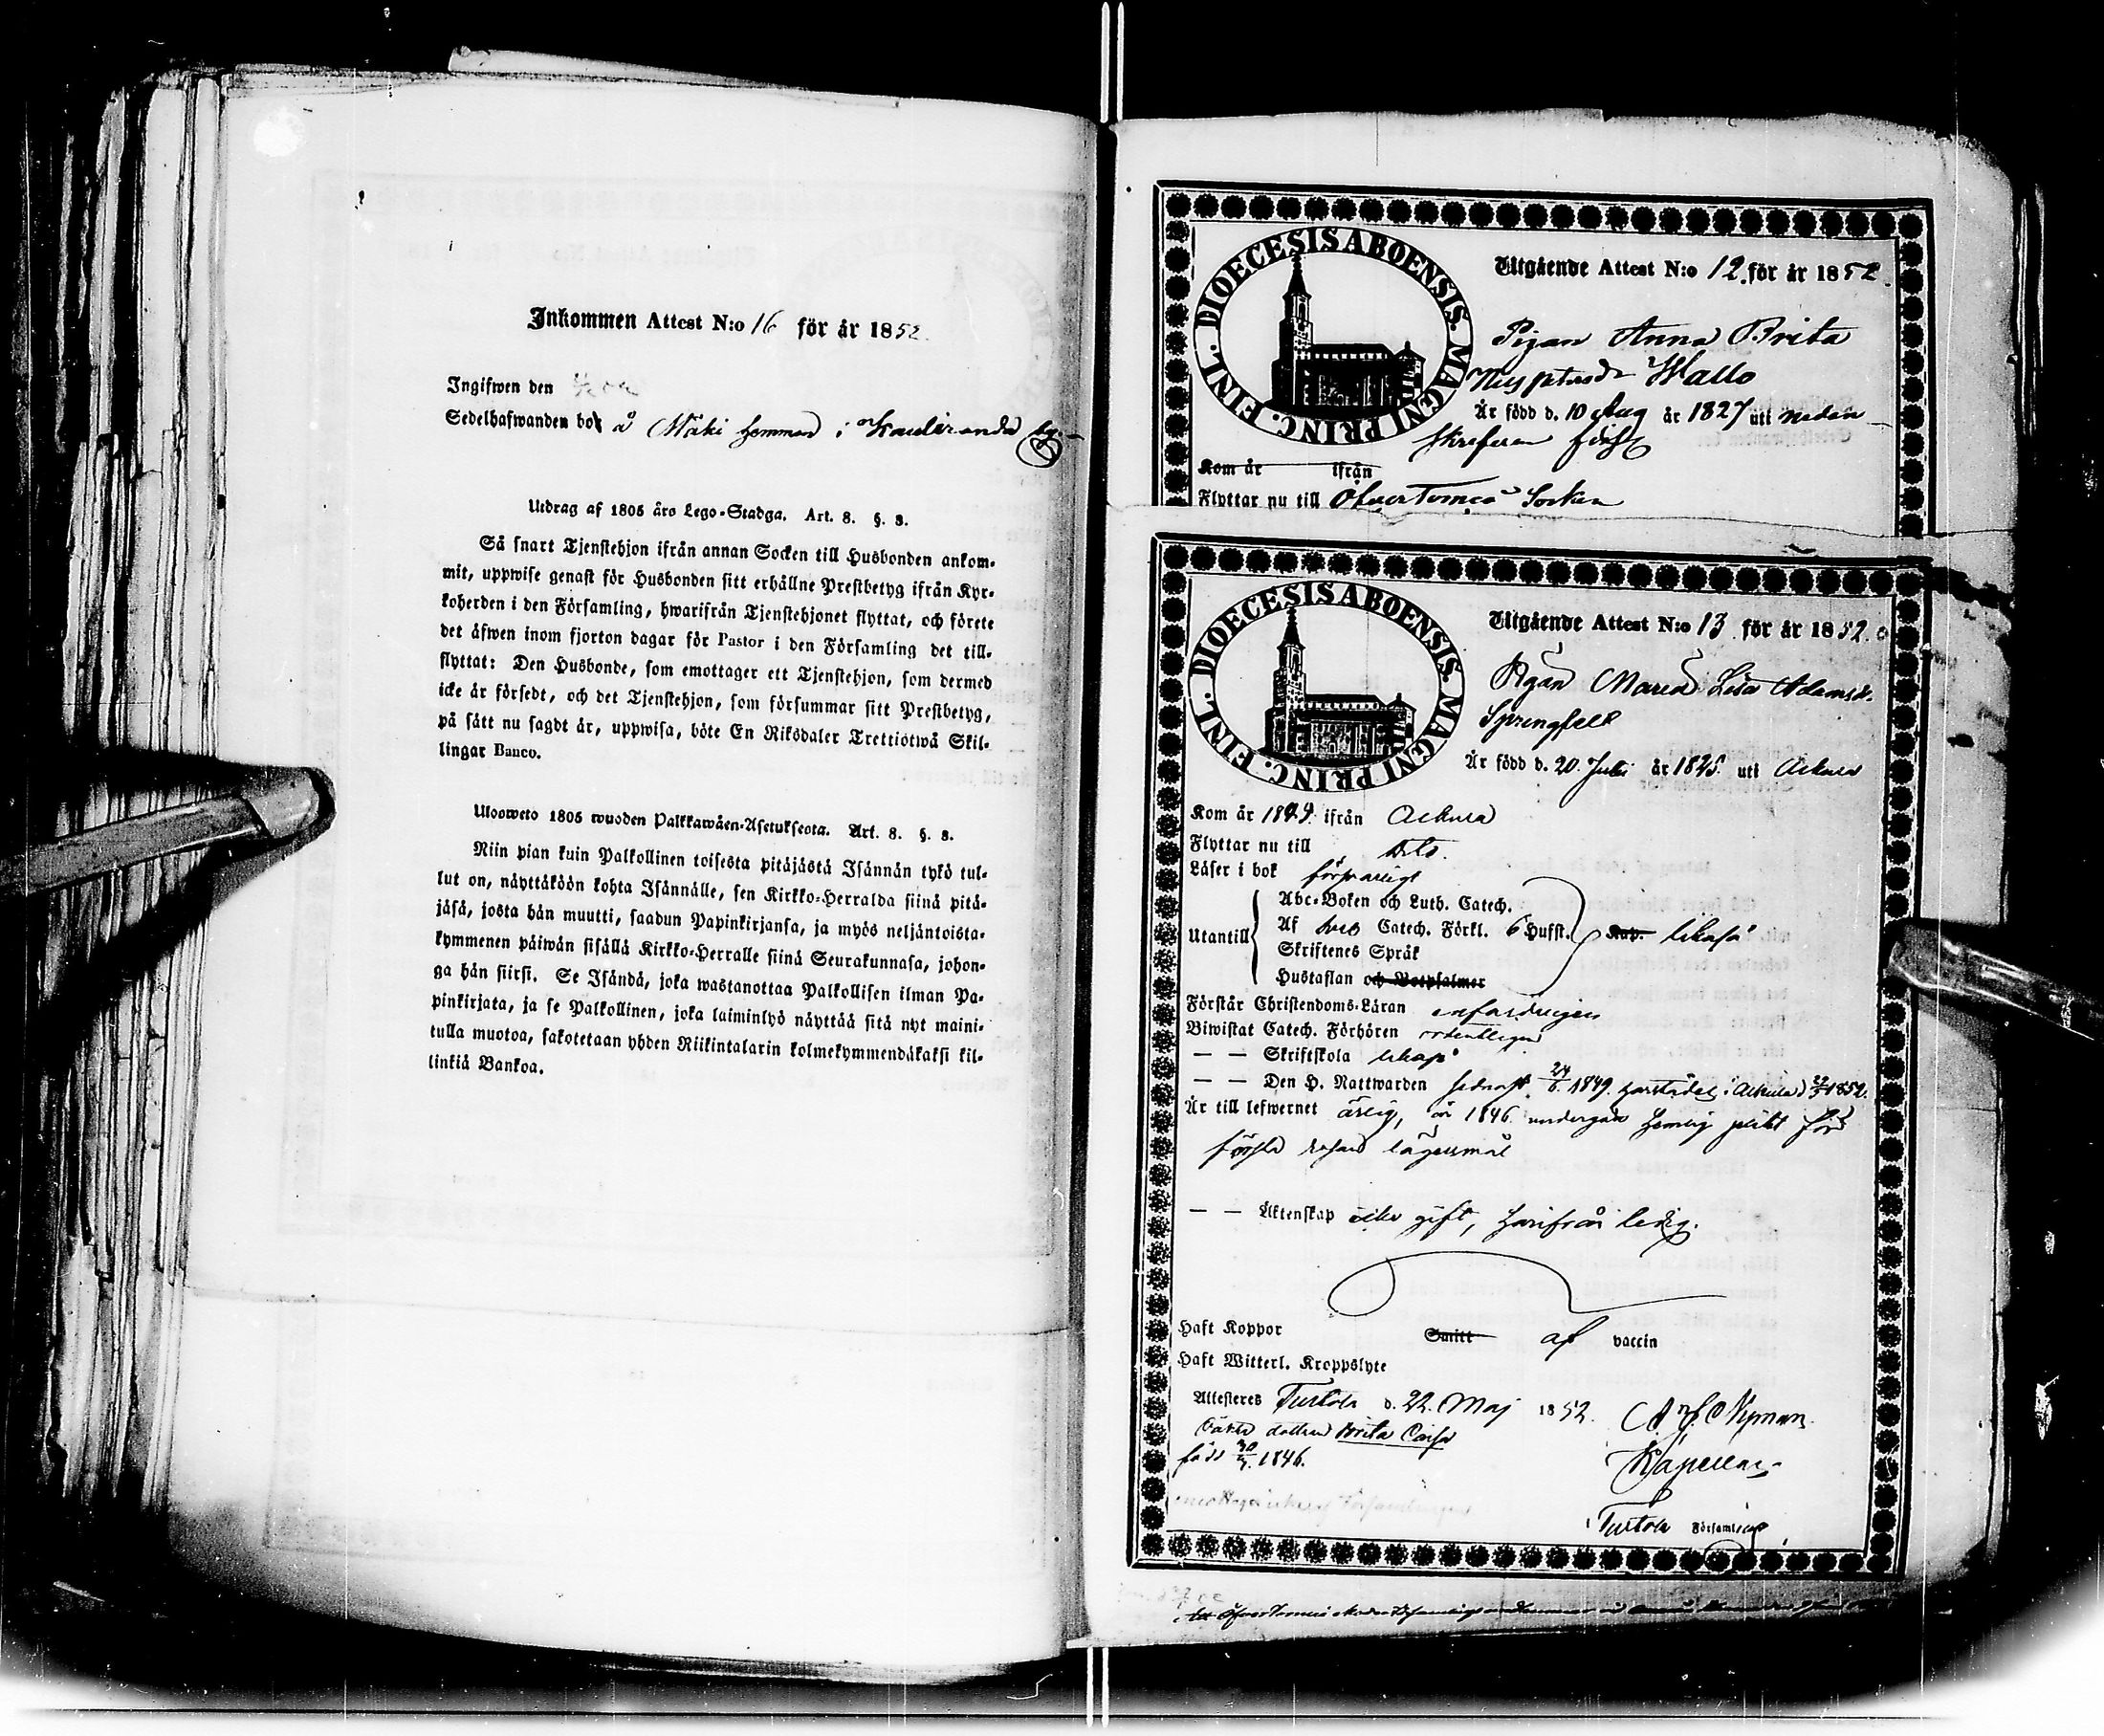 Inkommen Attest N:o 16 för år 1852.
Ingifwen den
Sedelhafwanden bor å Mäki hemman i Kauliranda by
Utdrag af 1805 års Lego-Stadga. Art. 8. §. 3.
Så snart Tjenstehjon ifrån annan Socken till Husbonden ankom-
mit, uppwise genast för Husbonden sitt erhållne Prestbetyg ifrån Kyr-
koherden i den Församling, hwarifrån Tjenstehjonet flyttat, och förete
det äfwen inom fjorton dagar för Pastor i den Församling det till-
flyttat: Den Husbonde, som emottager ett Tjenstehjon, som dermed
icke är försedt, och det Tjenstehjon, som försummar sitt Prestbetyg,
på sätt nu sagdt är, uppwisa, böte En Riksdaler Trettiotwå Skil-
lingar Banco.
Uloosweto 1805 wuoden Palkkawäen-Asetuksesta. Art. 8. §. 3.
Niin pian kuin Palkollinen toisesta pitäjästä Isännän tykö tul-
lut on, näyttäköön kohta Isännälle, sen Kirkko-Herralda siinä pitä-
jäsä, josta hän muutti, saadun Papinkirjansa, ja myös neljäntoista-
kymmenen päiwän sisällä Kirkko-Herralle siinä Seurakunnasa, johon-
ga hän siirsi. Se Isändä, joka wastanottaa Palkollisen ilman Pa-
pinkirjata, ja se Palkollinen, joka laiminlyö näyttää sitä nyt maini-
tulla muotoa, sakotetaan yhden Riikintalarin kolmekymmendäkaksi kil-
linkiä Bankoa.
DIOECESIS ABOENSIS. MAGNI PRINC. FINL.
Utgående Attest N:o 12. för år 1852.
Pigan Anna Brita
Wallo
Är född d. 10 Aug år 1827 uti nedan-
skrefven förs
Kom år ifrån
Flyttar nu till OfverTorneå Socken
DIOECESIS ABOENSIS. MAGNI PRINC. FINL.
Utgående Attest N:o 13 för år 1852.
Pigan Maria Lisa Adamsdr
Springfelt
Är född d. 20. Juli år 1825. uti Alkula
Kom år 1849. ifrån Alkula
Flyttar nu till Dito.
Läser i bok försvarligt
Abc-Boken och Luth. Catech.
Utantill Af hus Catech. Förkl. 6 Hufst. Kap. likaså
Skriftenes Språk
Hustaflan och Botpsalmer
Förstår Christendoms-Läran enfaldigen
Biwistat Catech. Förhören ordentligen
— — Skriftskola likaså
— — Den H. Nattwarden sednast 24/6 1849. härstädes, i Alkula 1852.
Är till lefwernet ärlig, år 1846 undergått hemlig plikt för
första resans lägersmål
— — Äktenskap icke gift, härifrån ledig.
Haft Koppor Smitt af vaccin
Haft Witterl. Kroppslyte
Attesteres Turtola d. 22. Maj 1852.
Nyman
Oäkta dottren Brita Caisa
född 1846.
Kapellan
i Turtola Församling